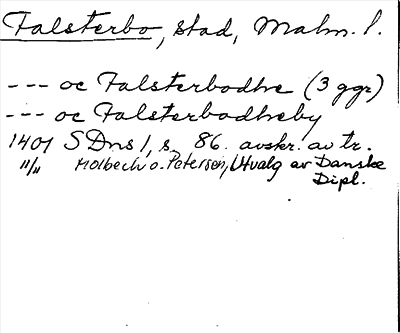 Falsterbo, stad, Malm. l.
--- oc Falsterbodhe (3 ggr)
--- oc Falsterbodheby
1401 SDns 1, s. 86. avskr. av tr.
11/11 Molbech o. Petersen, Utvalg av Danske
Dipl.